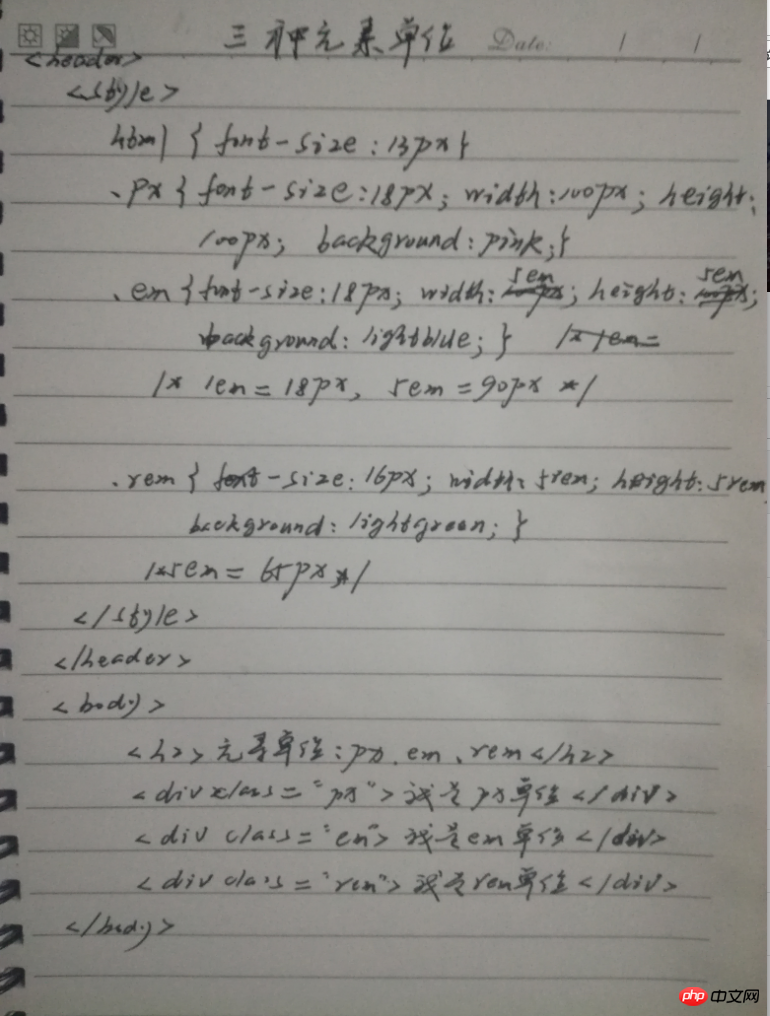 三种元素单位 Date: / /
<header>
<style>
html { font-size : 13px }
.px { font-size : 18px ; width : 100px ; height :
100px ; background : pink ; }
.em { font-size : 18px ; width : 5em ; height : 5em ;
background : lightblue ; } /* 1em =
/* 1em = 18px , 5em = 90px */
.rem { font-size : 16px ; width : 5rem ; height : 5rem
background : lightgreen ; }
/*5em = 65px */
</style>
</header>
<body>
<h2>元素单位 : px . em 、rem </h2>
<div class = "px"> 我是px单位 </div>
<div class = "em"> 我是em单位 </div>
<div class = "rem"> 我是rem单位 </div>
</body>
php 中文网